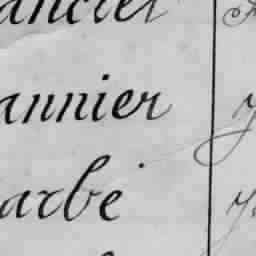 ancier
annier
arbé